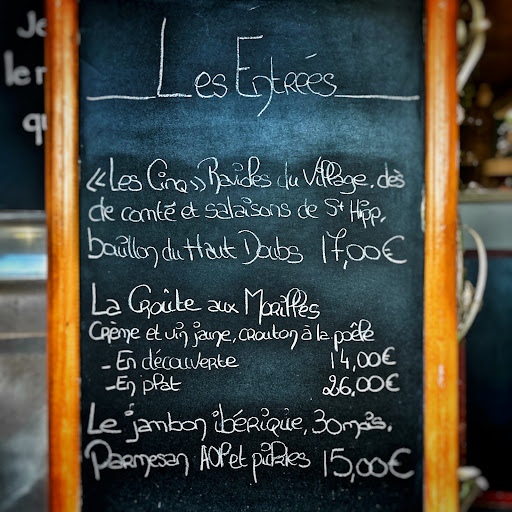 Je
le
q
Les Entrées
« Les Cinq » Ravioles du Village, dès
de comté et salaisons de St Hipp,
bouillon du Haut Doubs 17,00€
La Croûte aux Morilles
Crème et vin jaune, crouton à la poêle
- En découverte 14,00€
- En plat 26,00€
Le jambon ibérique, 30 mois,
Parmesan AOP et pickles 15,00€